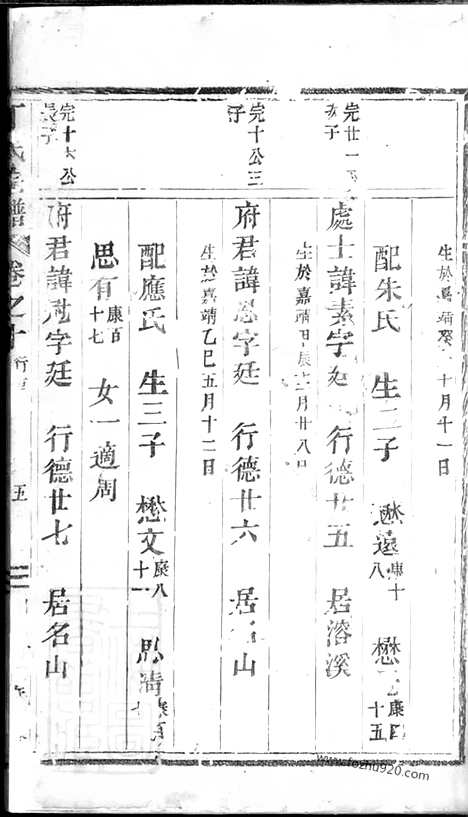 生於嘉靖癸 十月十一日
配朱氏 生二子 懋遠康十八 懋 康 十五
完廿一 子
處士諱素字廷 行德廿五 居溶溪
生於嘉靖甲辰十二月廿八日
完十公三子
府君諱 字廷 行德廿六 居名山
生於嘉靖乙巳五月十二日
配應氏 生三子 懋文康八十一 思清康百
思有康百十七 女一適周
完十六公長子
府君諱 字廷 行德廿七 居名山
丁氏宗譜 卷之十 行
五
www.fozhu920.com